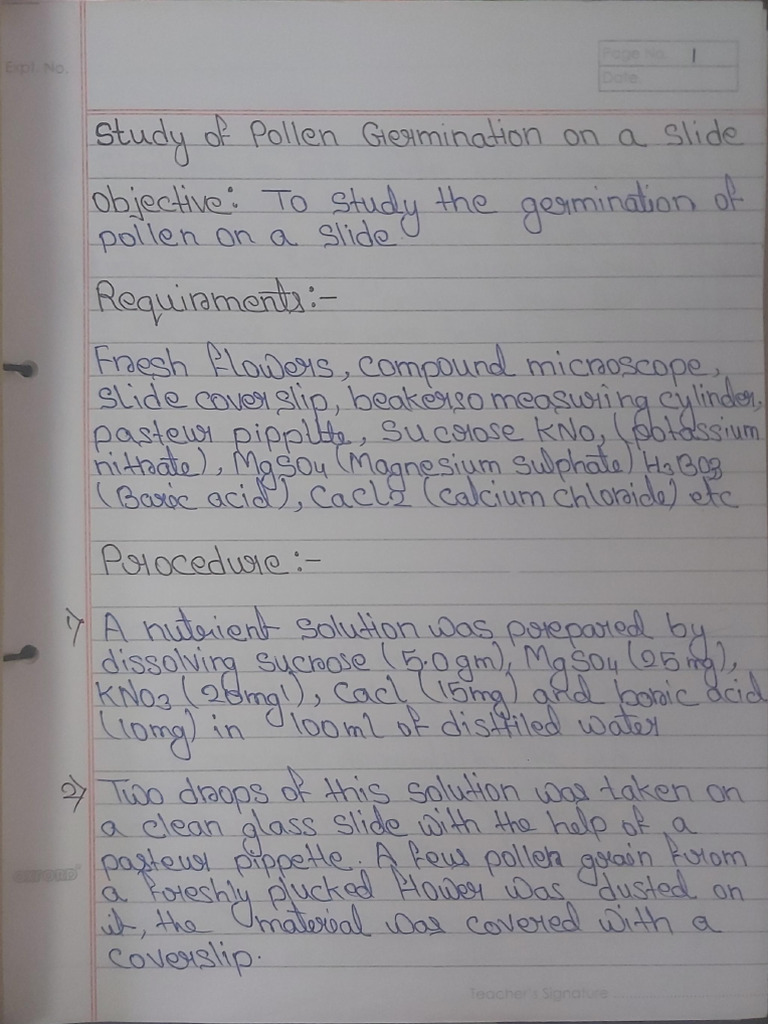 Expt. No.
Page No. 1
Date
Study of Pollen Germination on a slide
Objective: To study the germination of
pollen on a slide
Requirments:-
Fresh flowers, compound microscope,
slide cover slip, beakerso measuring cylinder,
pasteur pipplte, Sucrose KNO, (potassium
nitrate), MgSO4 (Magnesium sulphate) H3BO3
(Baric acid), CaCl2 (calcium chloride) etc
Procedure:-
1) A nutrient solution was prepared by
dissolving sucrose (5.0gm), MgSO4 (25mg),
KNO3 (26mg), CaCl (15mg) and boric acid
(10mg) in 100ml of distiled water
2) Two drops of this solution was taken on
a clean glass slide with the help of a
pasteur pippette. A few pollen grain from
a freshly plucked flower was dusted on
it, the material was covered with a
coverslip.
Teacher's Signature